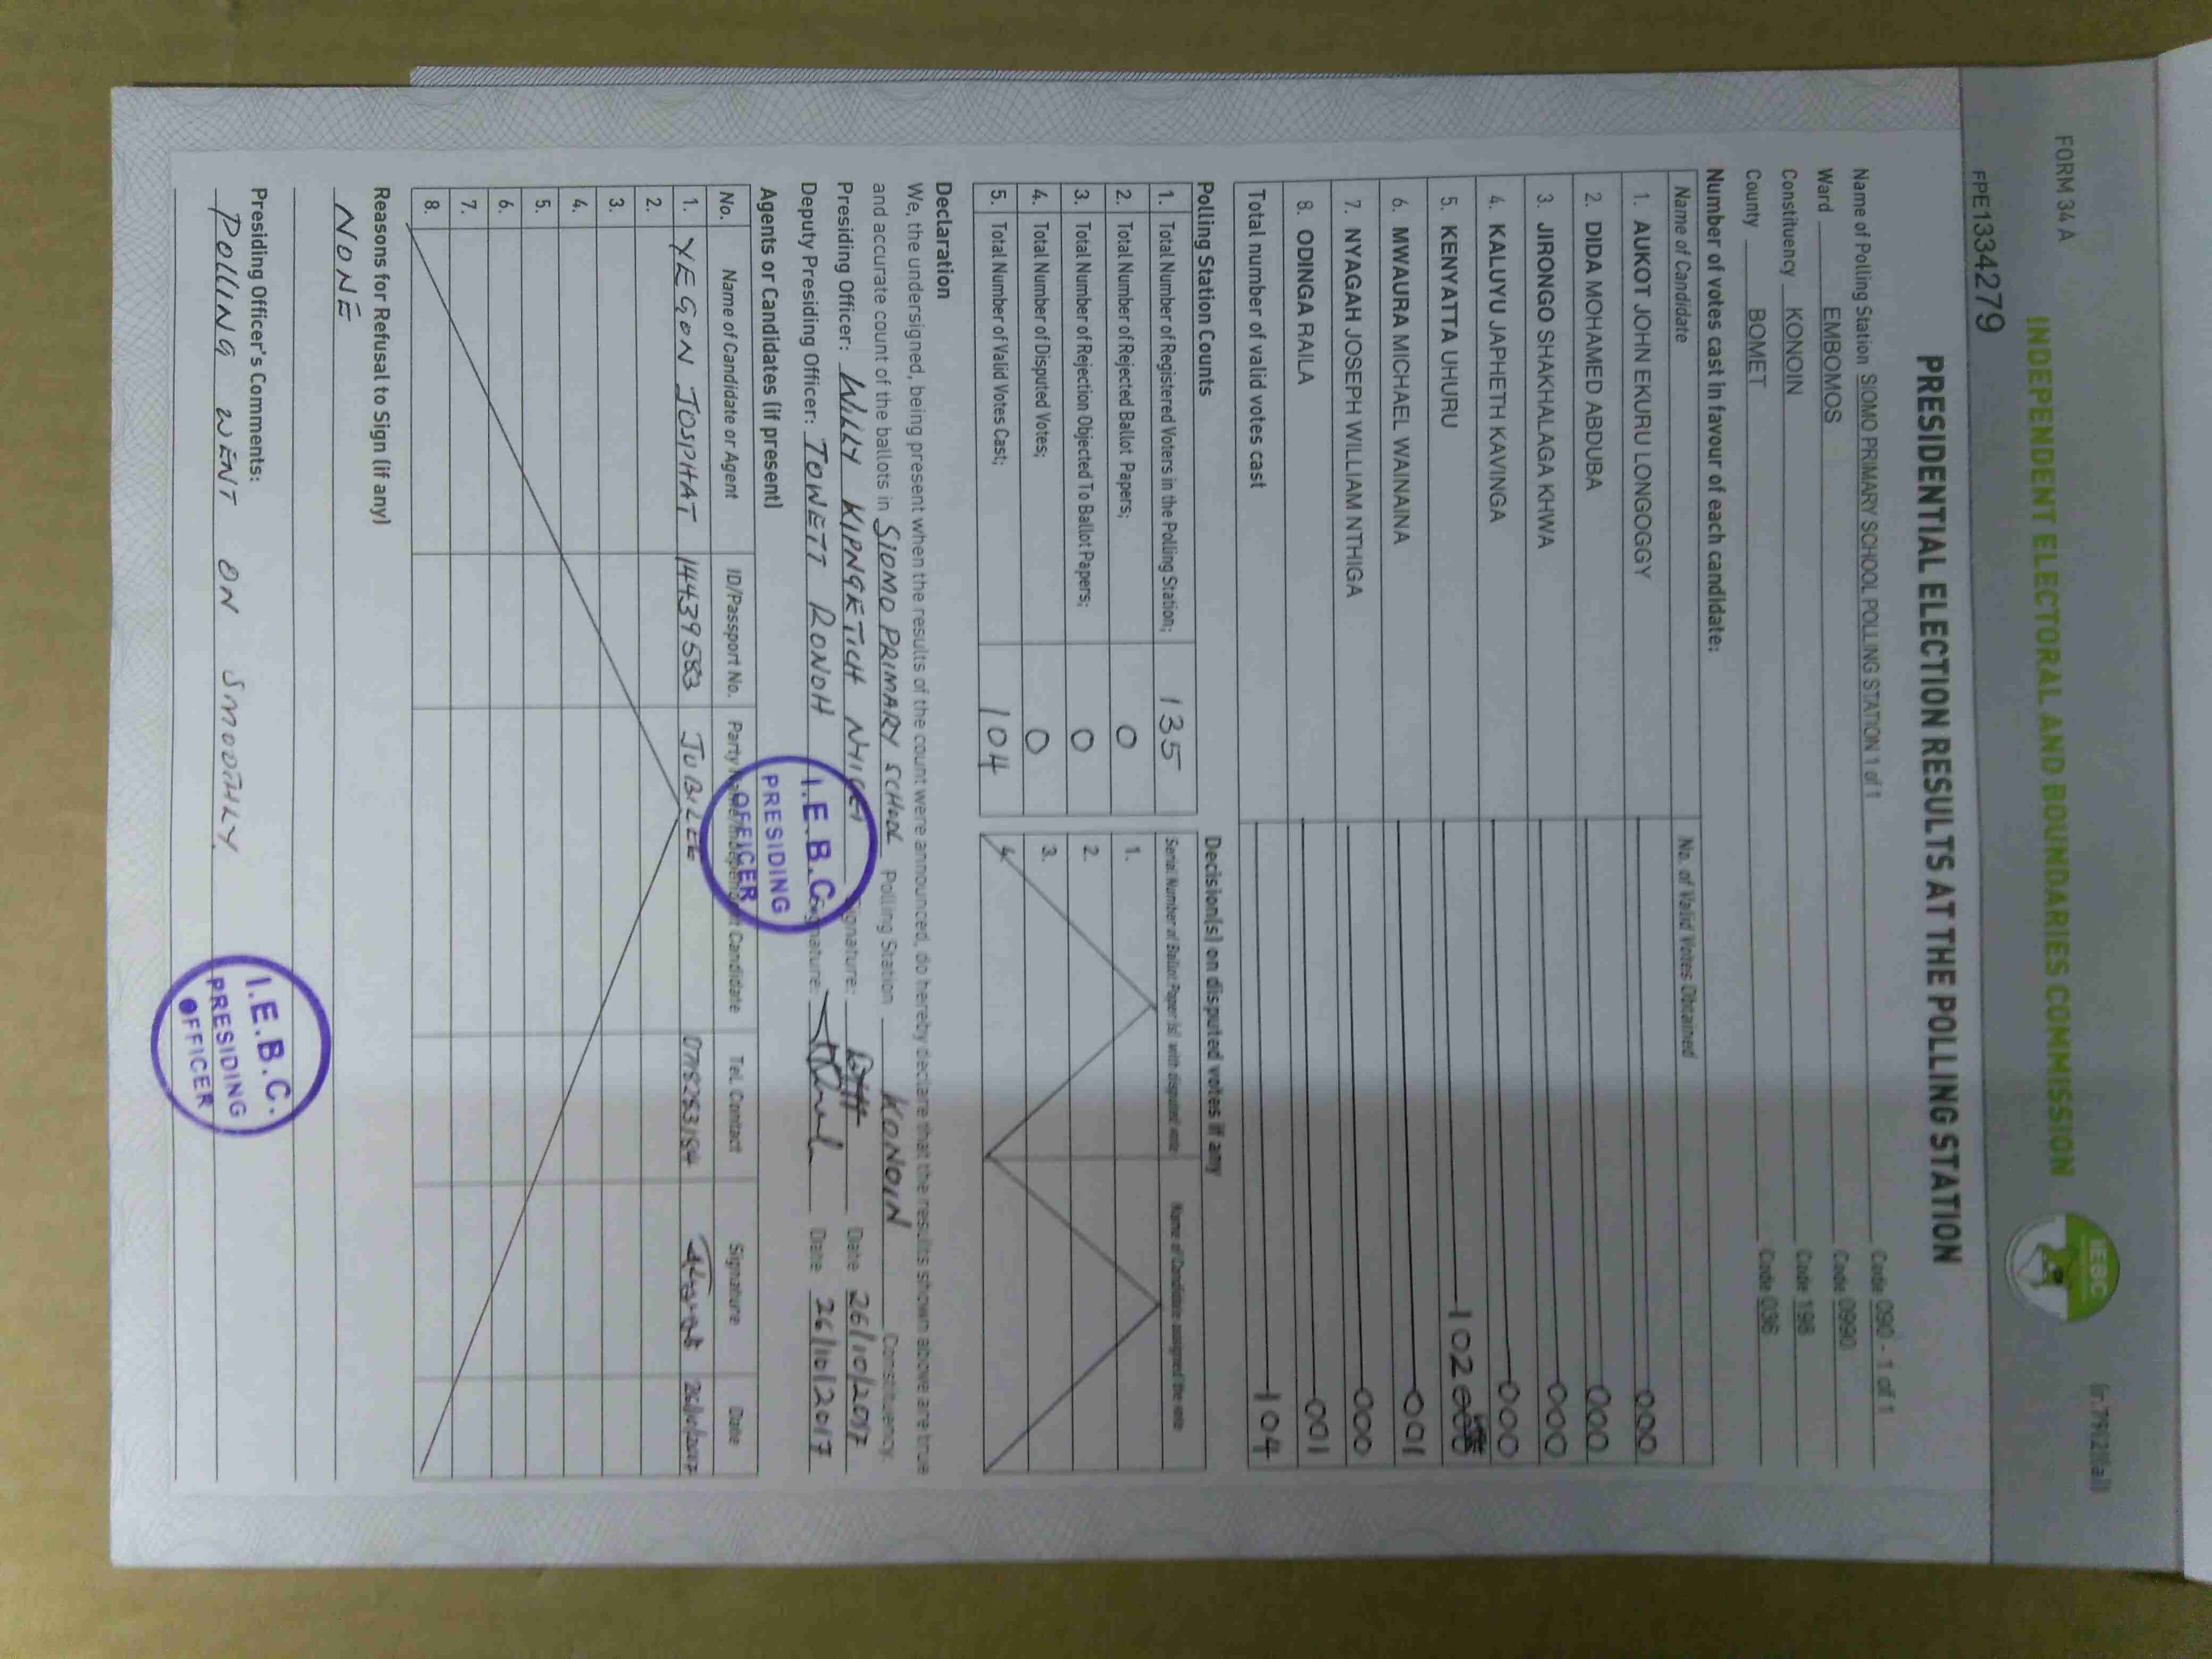 FORM 34 A
(r.79(2)(a))
INDEPENDENT ELECTORAL AND BOUNDARIES COMMISSION
IEBC
FPE1334279
PRESIDENTIAL ELECTION RESULTS AT THE POLLING STATION
Name of Polling Station SIOMO PRIMARY SCHOOL POLLING STATION 1 of 1 Code 090 - 1 of 1
Ward EMBOMOS Code 0990
Constituency KONOIN Code 198
County BOMET Code 036
Number of votes cast in favour of each candidate:
Name of Candidate No. of Valid Votes Obtained
1. AUKOT JOHN EKURU LONGOGGY 000
2. DIDA MOHAMED ABDUBA 000
3. JIRONGO SHAKHALAGA KHWA 000
4. KALUYU JAPHETH KAVINGA 000
5. KENYATTA UHURU 102
6. MWAURA MICHAEL WAINAINA 001
7. NYAGAH JOSEPH WILLIAM NTHIGA 000
8. ODINGA RAILA 001
Total number of valid votes cast 104
Polling Station Counts
1. Total Number of Registered Voters in the Polling Station; 135
2. Total Number of Rejected Ballot Papers; 0
3. Total Number of Rejection Objected To Ballot Papers; 0
4. Total Number of Disputed Votes; 0
5. Total Number of Valid Votes Cast; 104
Decision(s) on disputed votes if any
Serial Number of Ballot Paper (s) with disputed vote Name of Candidate assigned the vote
1.
2.
3.
4.
Declaration
We, the undersigned, being present when the results of the count were announced, do hereby declare that the results shown above are true
and accurate count of the ballots in SIOMO PRIMARY SCHOOL Polling Station KONOIN Constituency.
Presiding Officer: WILLY KIPNGETICH Signature: Date 26/10/2017
Deputy Presiding Officer: TOWETT RONOH Signature: Date 26/10/2017
I.E.B.C.
PRESIDING
OFFICER
Agents or Candidates (if present)
No. Name of Candidate or Agent ID/Passport No. Party Name/Independent Candidate Tel. Contact Signature Date
1. YEGON JOSPHAT 14439583 JUBILEE 26/10/2017
2.
3.
4.
5.
6.
7.
8.
Reasons for Refusal to Sign (if any)
NONE
Presiding Officer's Comments:
POLLING WENT ON SMOOTHLY
I.E.B.C.
PRESIDING
OFFICER